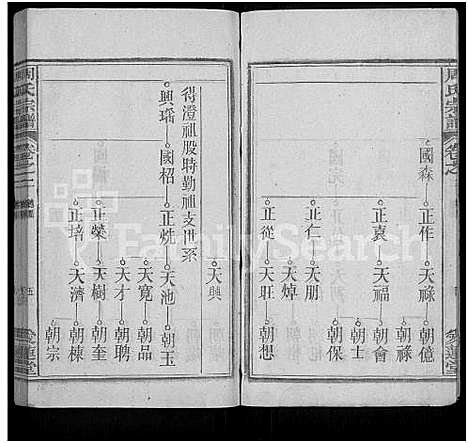 周氏宗譜
卷之
國森
正作 天祿 朝億
朝祿
正袁 天福 朝會
朝士
正仁 天朋 朝保
天焯
正從 天旺 朝想
愛蓮堂
天興
得澄祖股時勤祖支世系
興瑤 國柖 正烑 天池 朝玉
天寬 朝品
天才 朝聘
正榮 天樹 朝奎
朝棟
正培 天濟 朝宗
周氏宗譜
卷之
五
愛蓮堂
FamilySearch